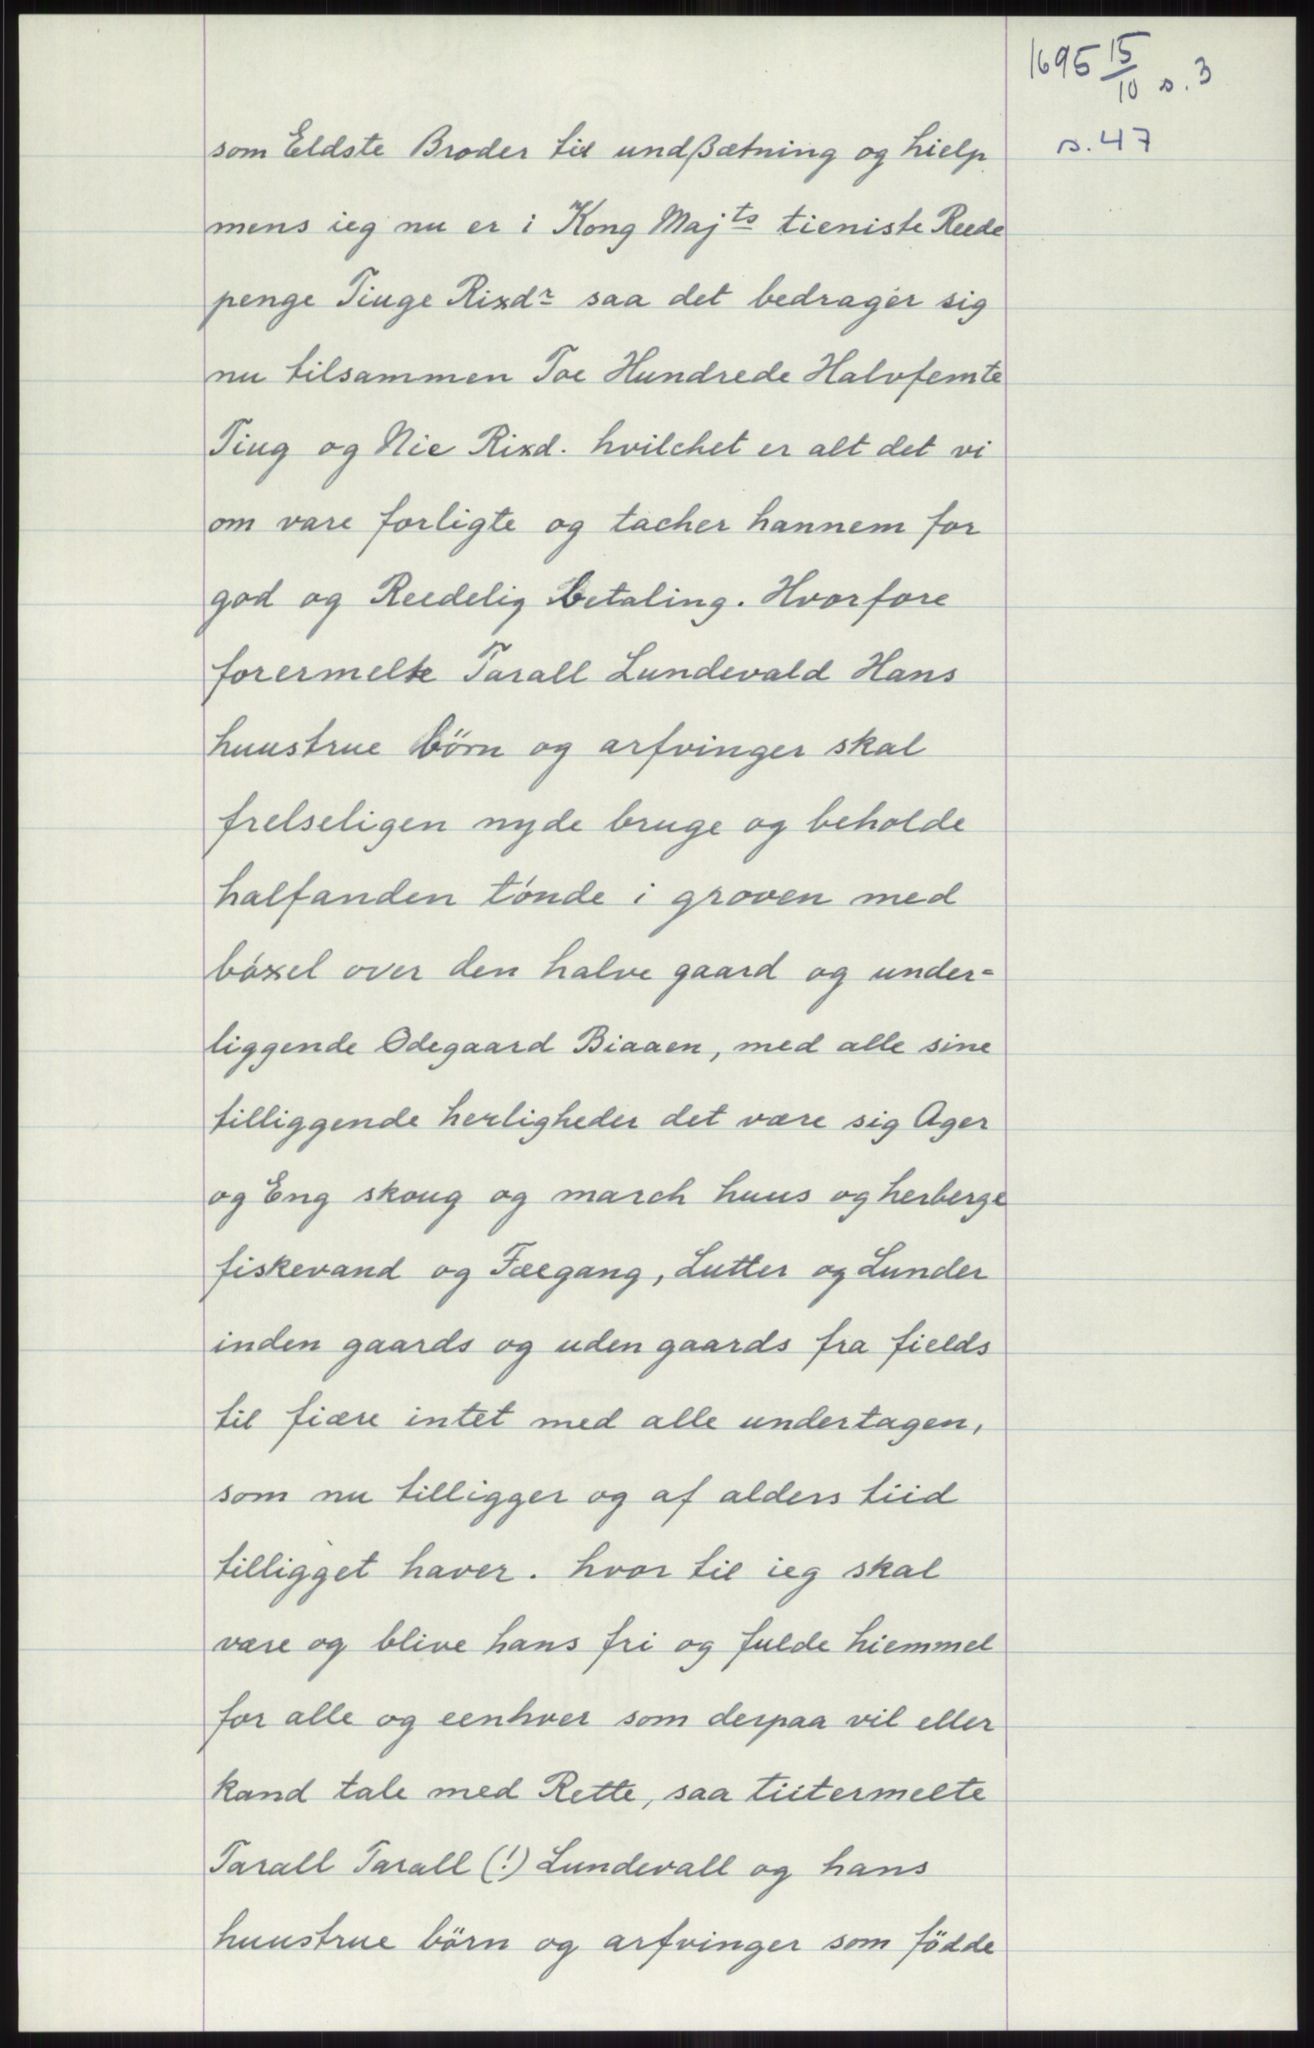 1695 15/10 s. 3
s. 47
som Eldste Broder til undßætning og hielp
mens ieg nu er i Kong Majts tieniste Reede
penge Tiuge Rixdr saa det bedrager sig
nu tilsammen Toe Hundrede Halvfemte
Tiug og Nie Rixd. hvilchet er alt det vi
om vare forligte og tacher hannem for
god og Reedelig betaling. Hvorfore
forermelte Tarall Lundevald Hans
huustrue börn og arfvinger skal
frelseligen nyde bruge og beholde
halfanden tónde i groven med
bóxel over den halve gaard og under=
liggende Odegaard Biaaen, med alle sine
tilliggende herligheder det være sig Ager
og Eng skoug og march huus og herberge
fiskevand og Fæegang, Lutter og Lunder
inden gaards og uden gaards fra fields
til fiære intet med alle undertagen,
som nu tilligger og af alders tiid
tilligget haver. hvor til ieg skal
være og blive hans fri og fulde hiemmel
for alle og eenhver som derpaa vil eller
kand tale med Rette, saa titermelte
Tarall Tarall (!) Lundevall og hans
huustrue börn og arfvinger som födde